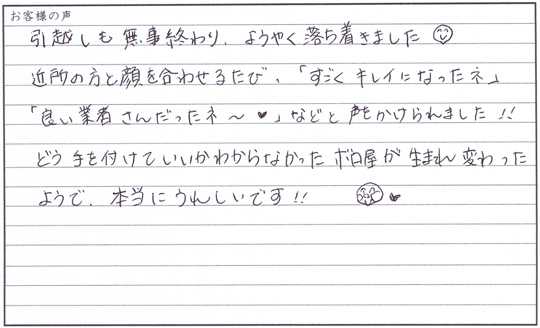 お客様の声
引越しも無事終わり、ようやく落ち着きました
近所の方と顔を合わせるたび、「すごくキレイになったネ」
「良い業者さんだったネ〜♥」などと声をかけられました!!
どう手を付けていいかわからなかったボロ屋が生まれ変わった
ようで、本当にうれしいです!! ♥